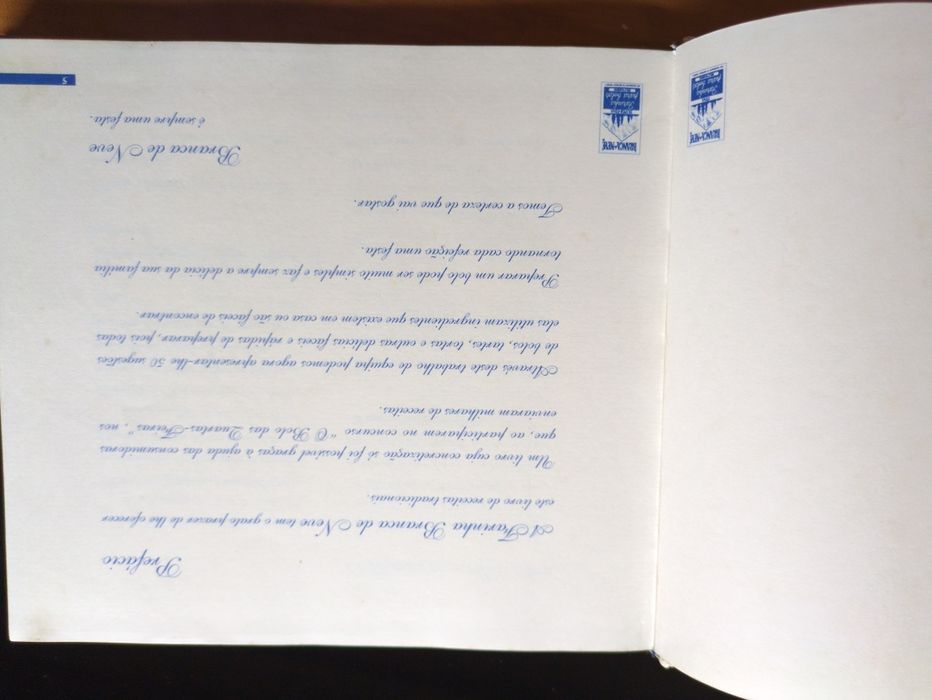 Prefácio
A Farinha Branca de Neve tem o grato prazer de lhe oferecer
este livro de receitas tradicionais.
Um livro cuja concretização só foi possível graças à ajuda das consumidoras
que, ao participarem no concurso "O Bolo das Quartas-Feiras", nos
enviaram milhares de receitas.
Através deste trabalho de equipa podemos agora apresentar-lhe 50 sugestões
de bolos, tartes, tortas e outras delícias fáceis e rápidas de preparar, pois todas
elas utilizam ingredientes que existem em casa ou são fáceis de encontrar.
Preparar um bolo pode ser muito simples e faz sempre a delícia da sua família
tornando cada refeição uma festa.
Temos a certeza de que vai gostar.
Branca de Neve
é sempre uma festa.
5
BRANCA DE NEVE
BRANCA DE NEVE